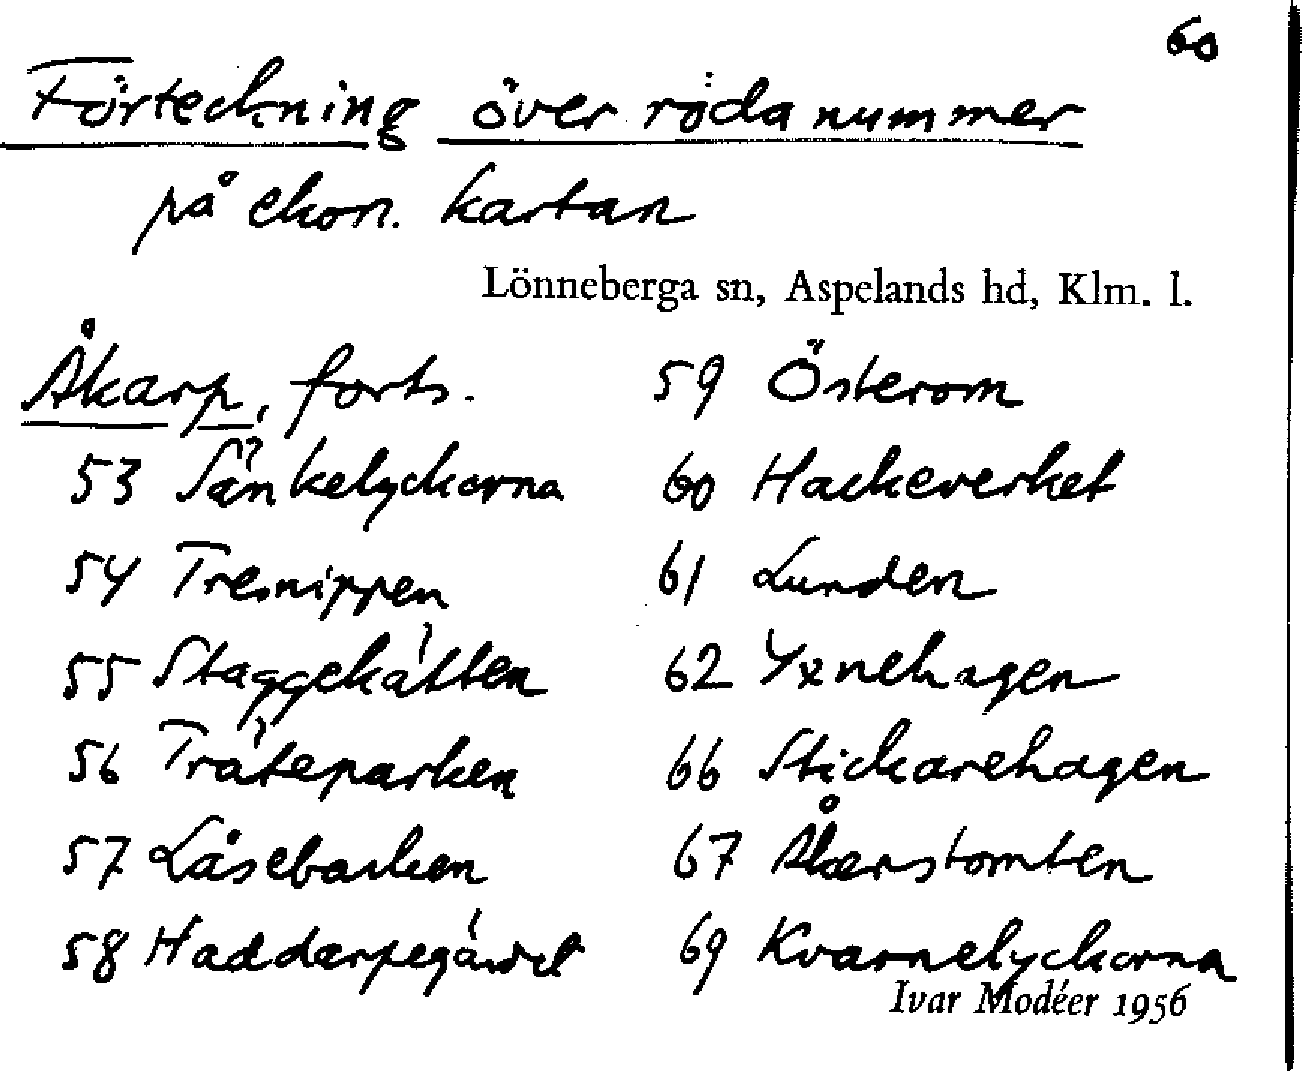 60
Förteckning över röda nummer
på ekon. kartan
Lönneberga sn, Aspelands hd, Klm. l.
Åkarp, forts.
53 Sänkelyckorna
54 Trenippen
55 Staggekätten
56 Träteparken
57 Låsebacken
58 Haddarpegärdet
59 Österom
60 Hackeverket
61 Lunden
62 Yxnehagen
66 Stickarehagen
67 Åkerstomten
69 Kvarnelyckorna
Ivar Modéer 1956